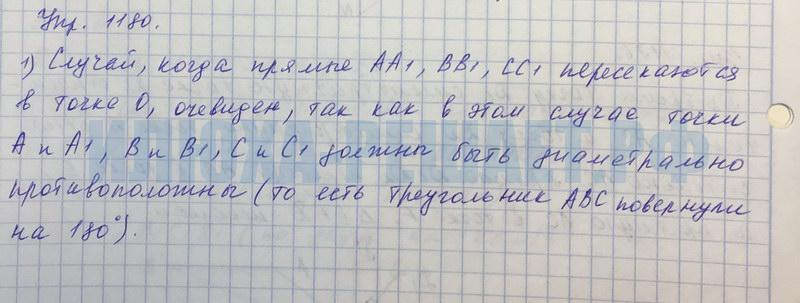 Упр. 1180.
1) Случай, когда прямые AA1, BB1, CC1 пересекаются
в точке O, очевиден, так как в этом случае точки
A и A1, B и B1, C и C1 должны быть диаметрально
противоположны (то есть треугольник ABC повернули
на 180°).